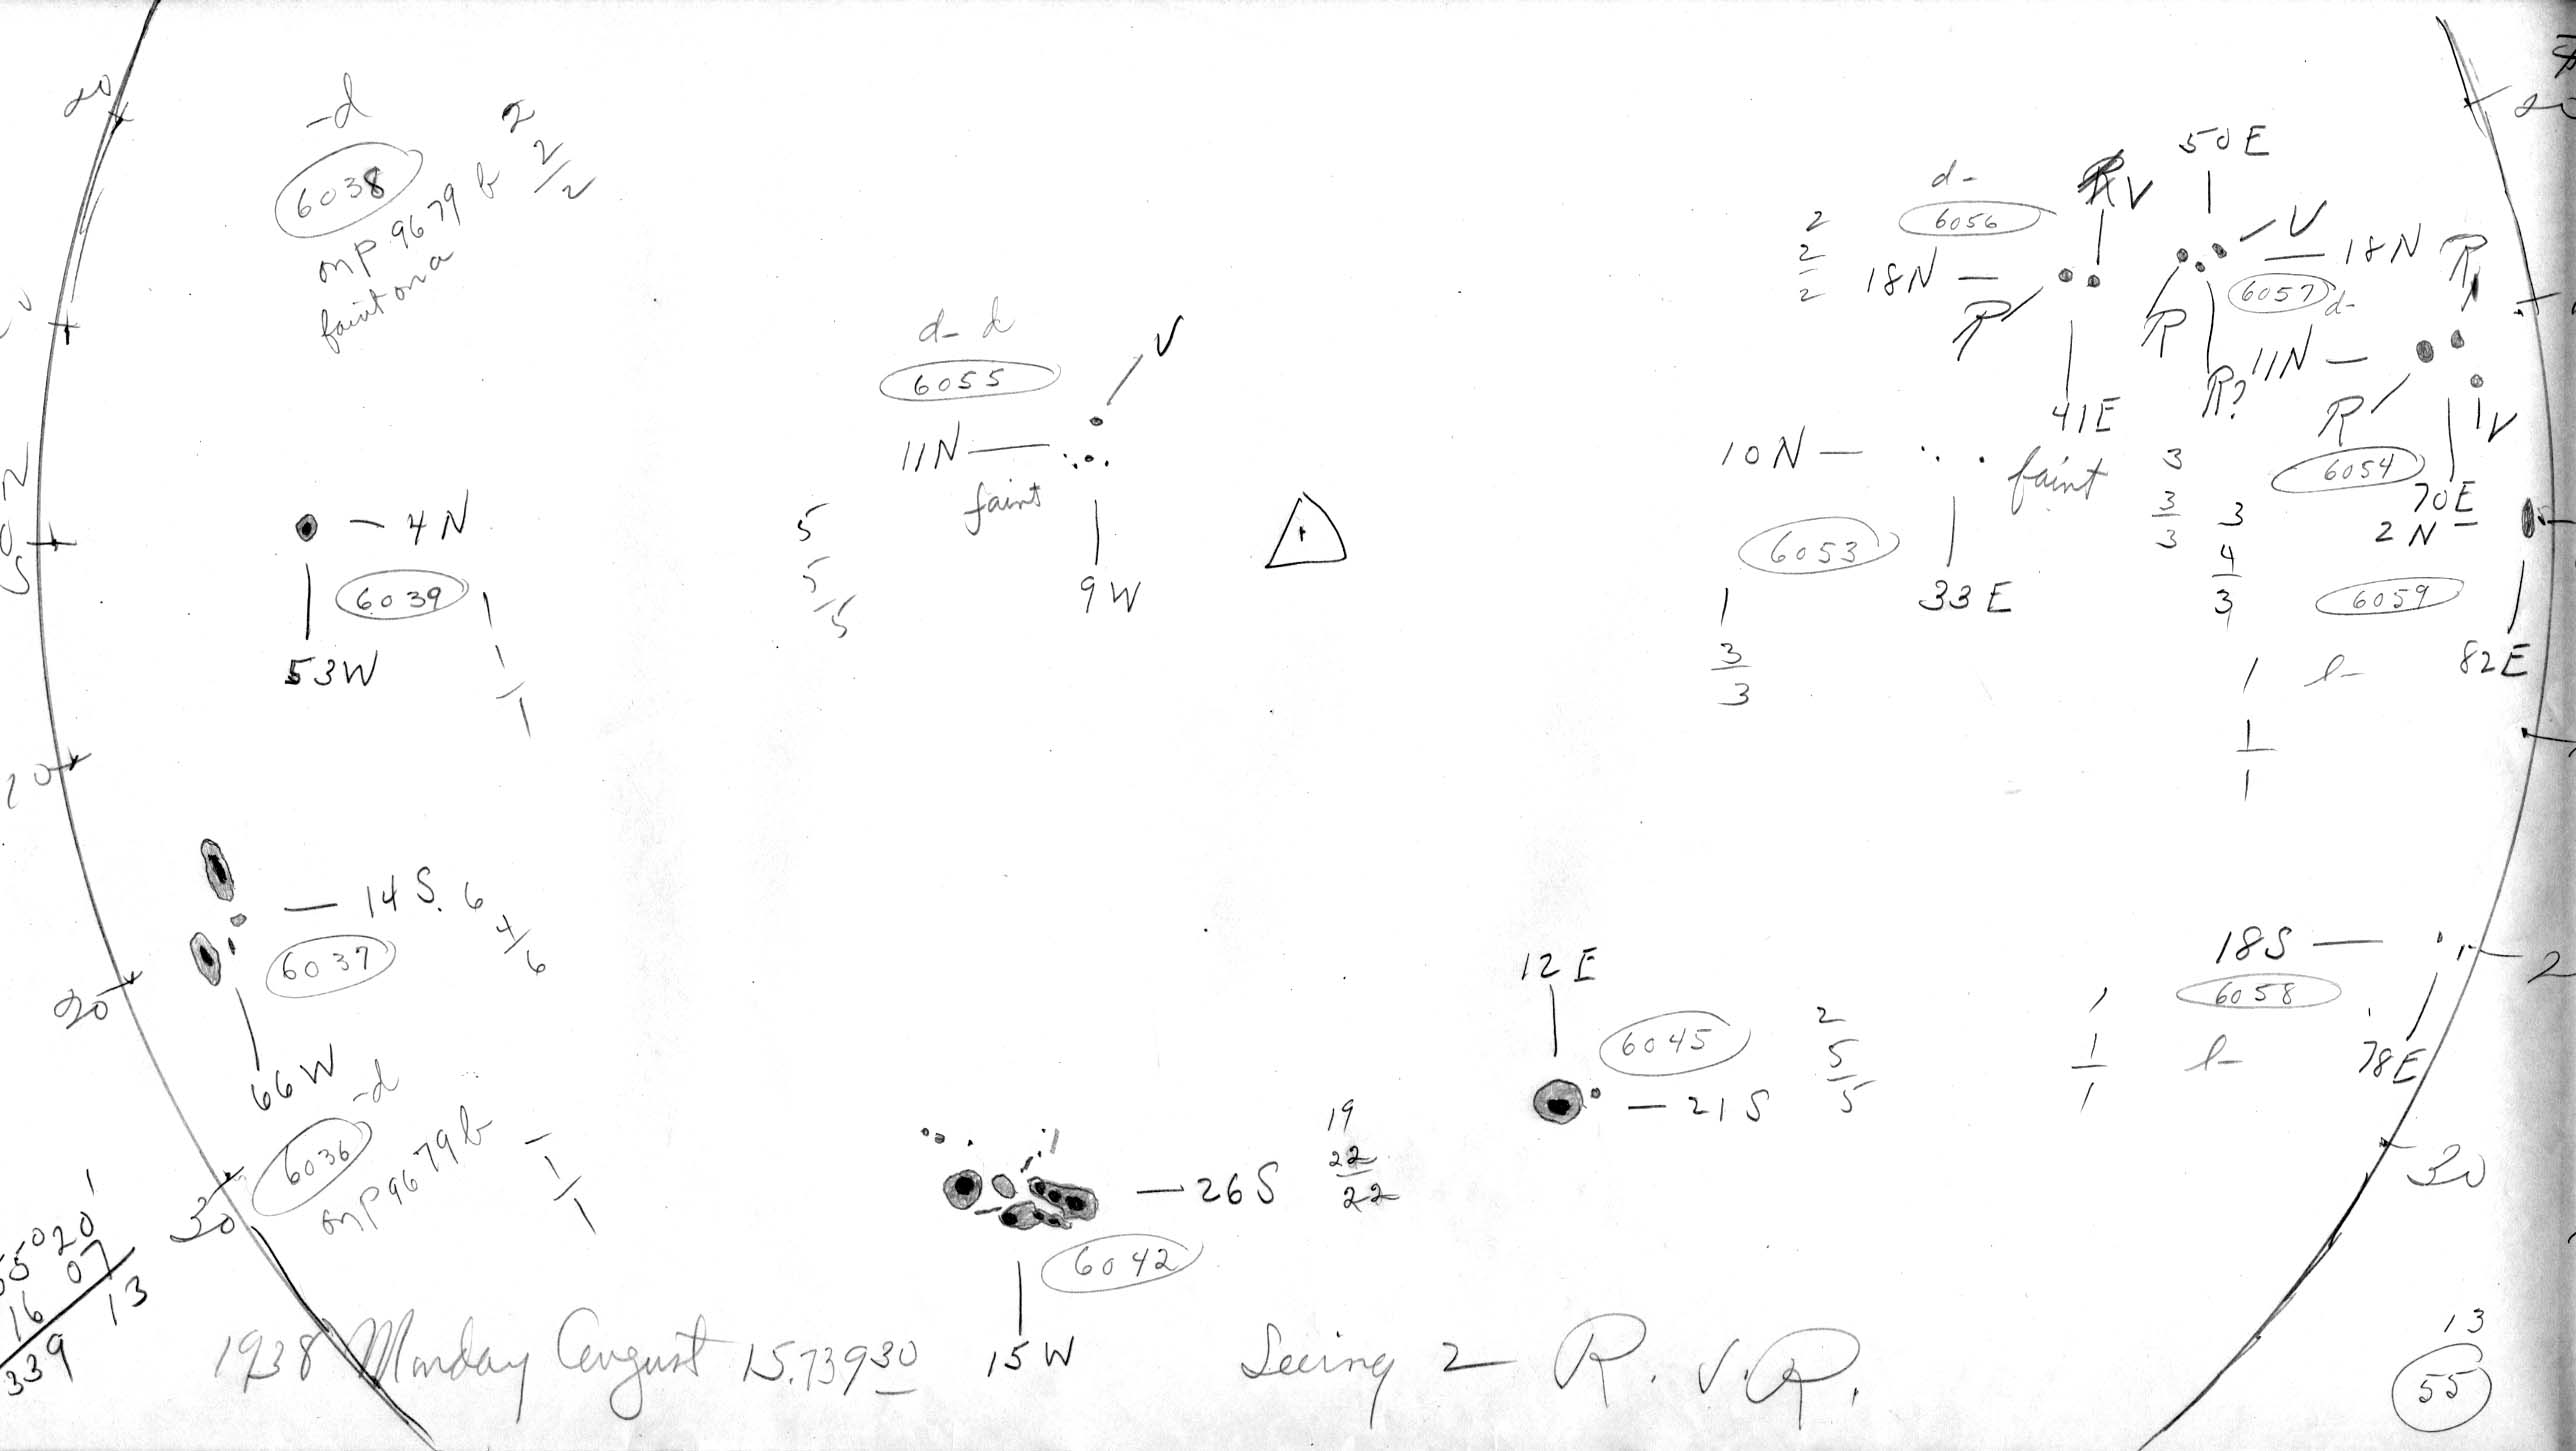 20
-d
6038
on p 9679 b
faint on a
2
2
2
4N
6039
53W
1
1
1
14 S.
6
4
6
6037
66 W
-d
6036
on p 9679 b
1
1
1
10
20
30
d- d
6055
V
11N
faint
9W
5
5
5
d-
6056
2
2
2
18N
R
V
41E
50 E
V
18N
R
R?
6057
d-
R
11N
R
V
6054
70E
3
4
3
10N
faint
6053
33E
3
3
3
1
3
3
2N
6059
82E
1
1
1
l-
18S
6058
78E
1
1
1
l-
12 E
6045
21 S
2
5
5
26 S
19
22
22
6042
15 W
20
30
20 1
07
16 13
339
1938 Monday August 15.73930
Seeing 2 R. V. R.
13
55